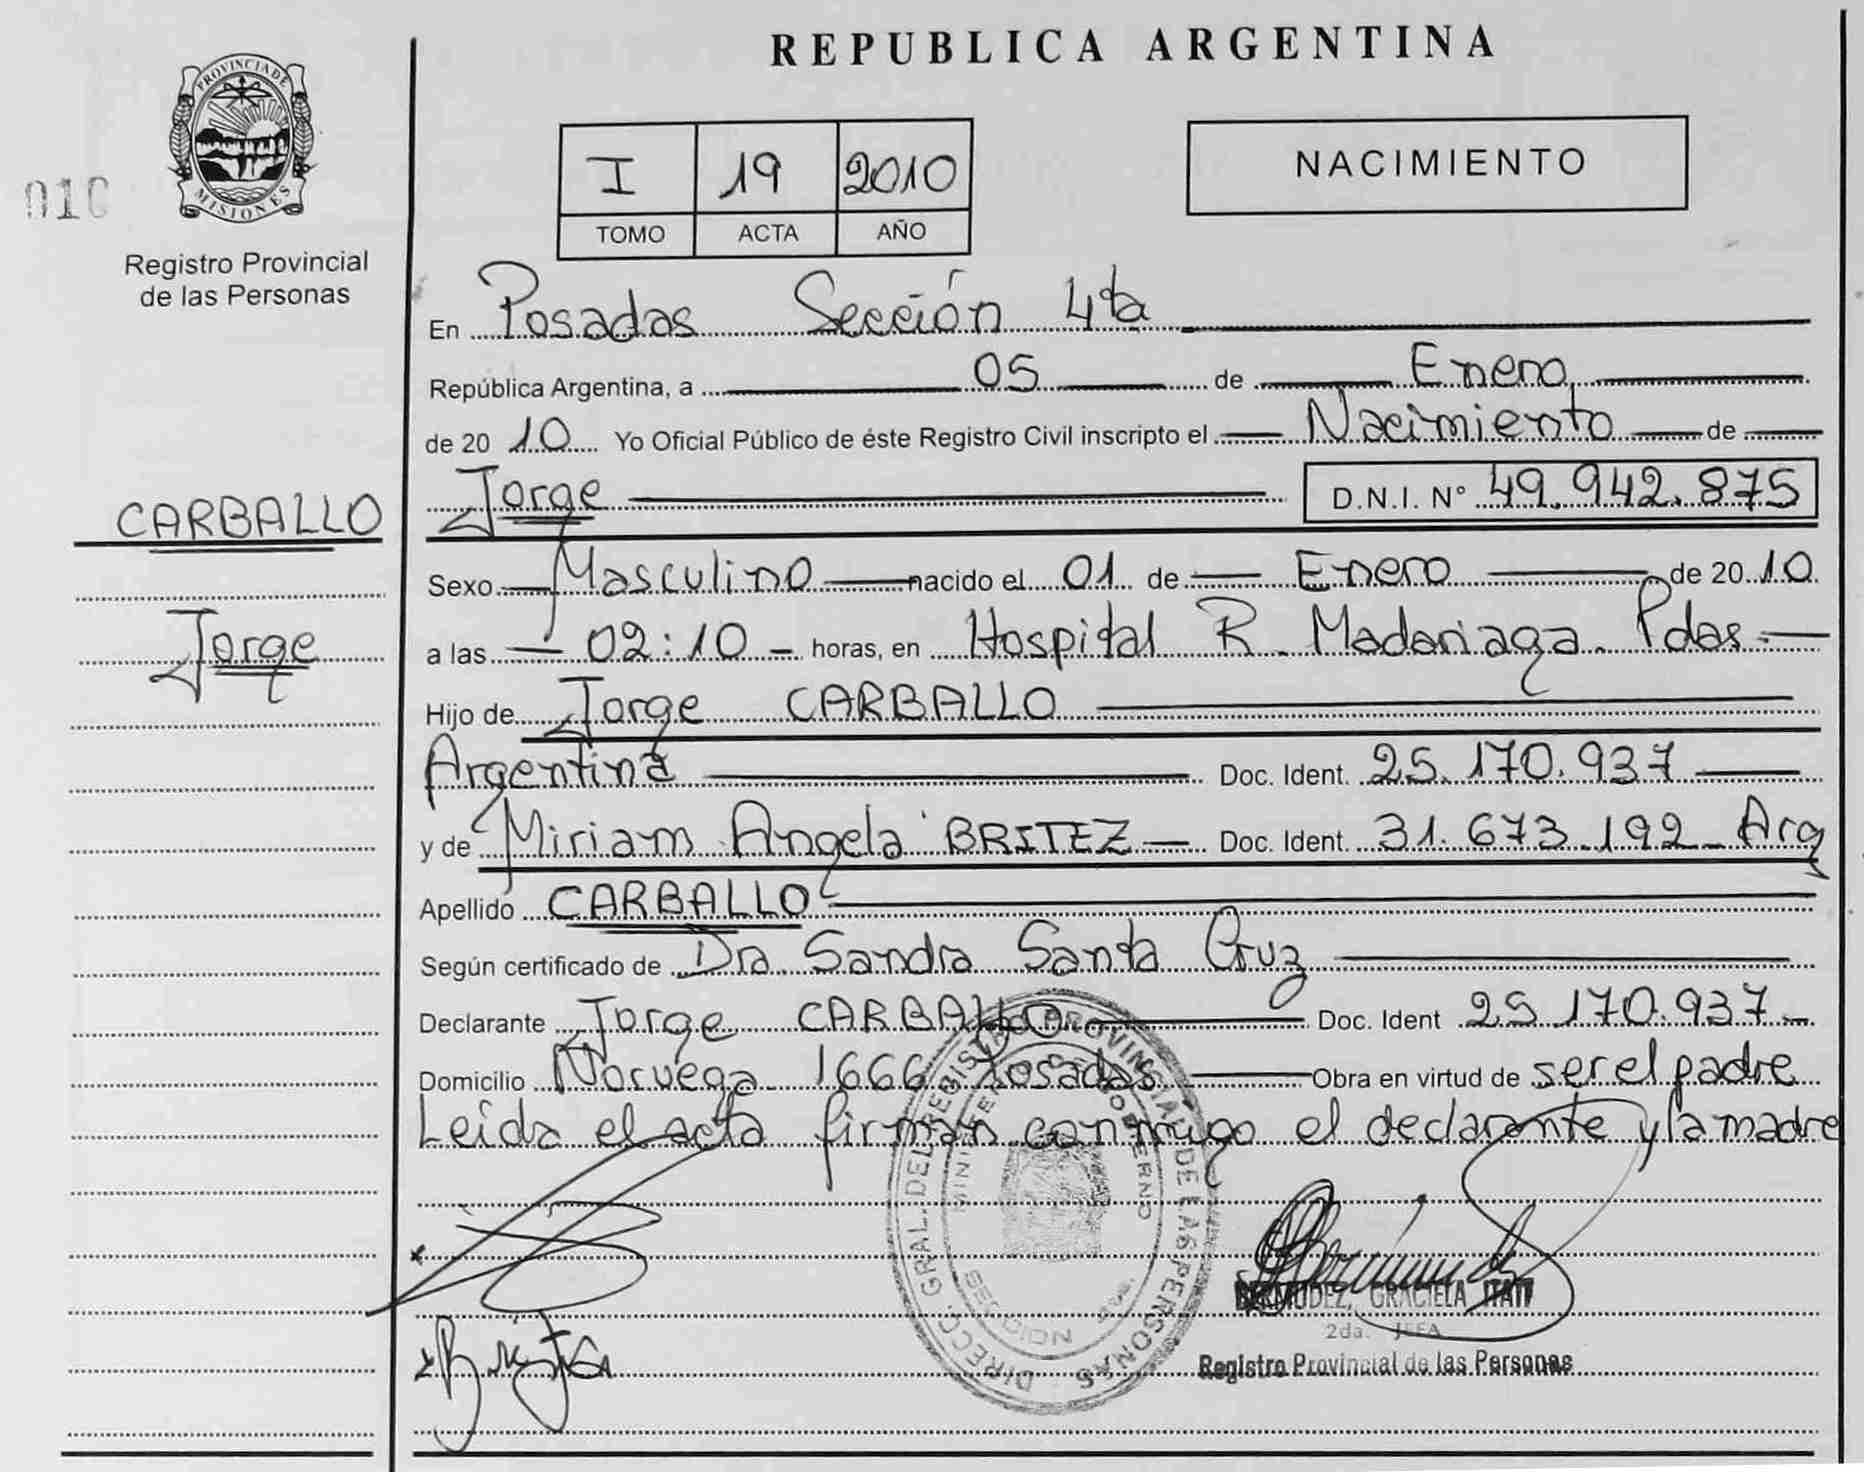 REPUBLICA ARGENTINA
PROVINCIA DE
MISIONES
010
Registro Provincial
de las Personas
I 19 2010
TOMO ACTA AÑO
NACIMIENTO
En Posadas Sección 4ta
República Argentina, a 05 de Enero
de 2010 Yo Oficial Público de éste Registro Civil inscripto el Nacimiento de
CARBALLO
Jorge D.N.I. N° 49.942.875
Sexo Masculino nacido el 01 de Enero de 2010
Jorge
a las 02:10 horas, en Hospital R. Madariaga. Pdas
Hijo de Jorge CARBALLO
Argentina Doc. Ident. 25.170.937
y de Miriam Angela BRITEZ Doc. Ident. 31.673.192 Arg
Apellido CARBALLO
Según certificado de Dra Sandra Santa Cruz
Declarante Jorge CARBALLO Doc. Ident 25.170.937
Domicilio Noruega 1666 Posadas Obra en virtud de ser el padre
Leída el acta firman conmigo el declarante y la madre
DIRECC. GRAL. DEL REGISTRO PROVINCIAL DE LAS PERSONAS
BERMUDEZ, GRACIELA ITATI
2da. JEFA
Registro Provincial de las Personas